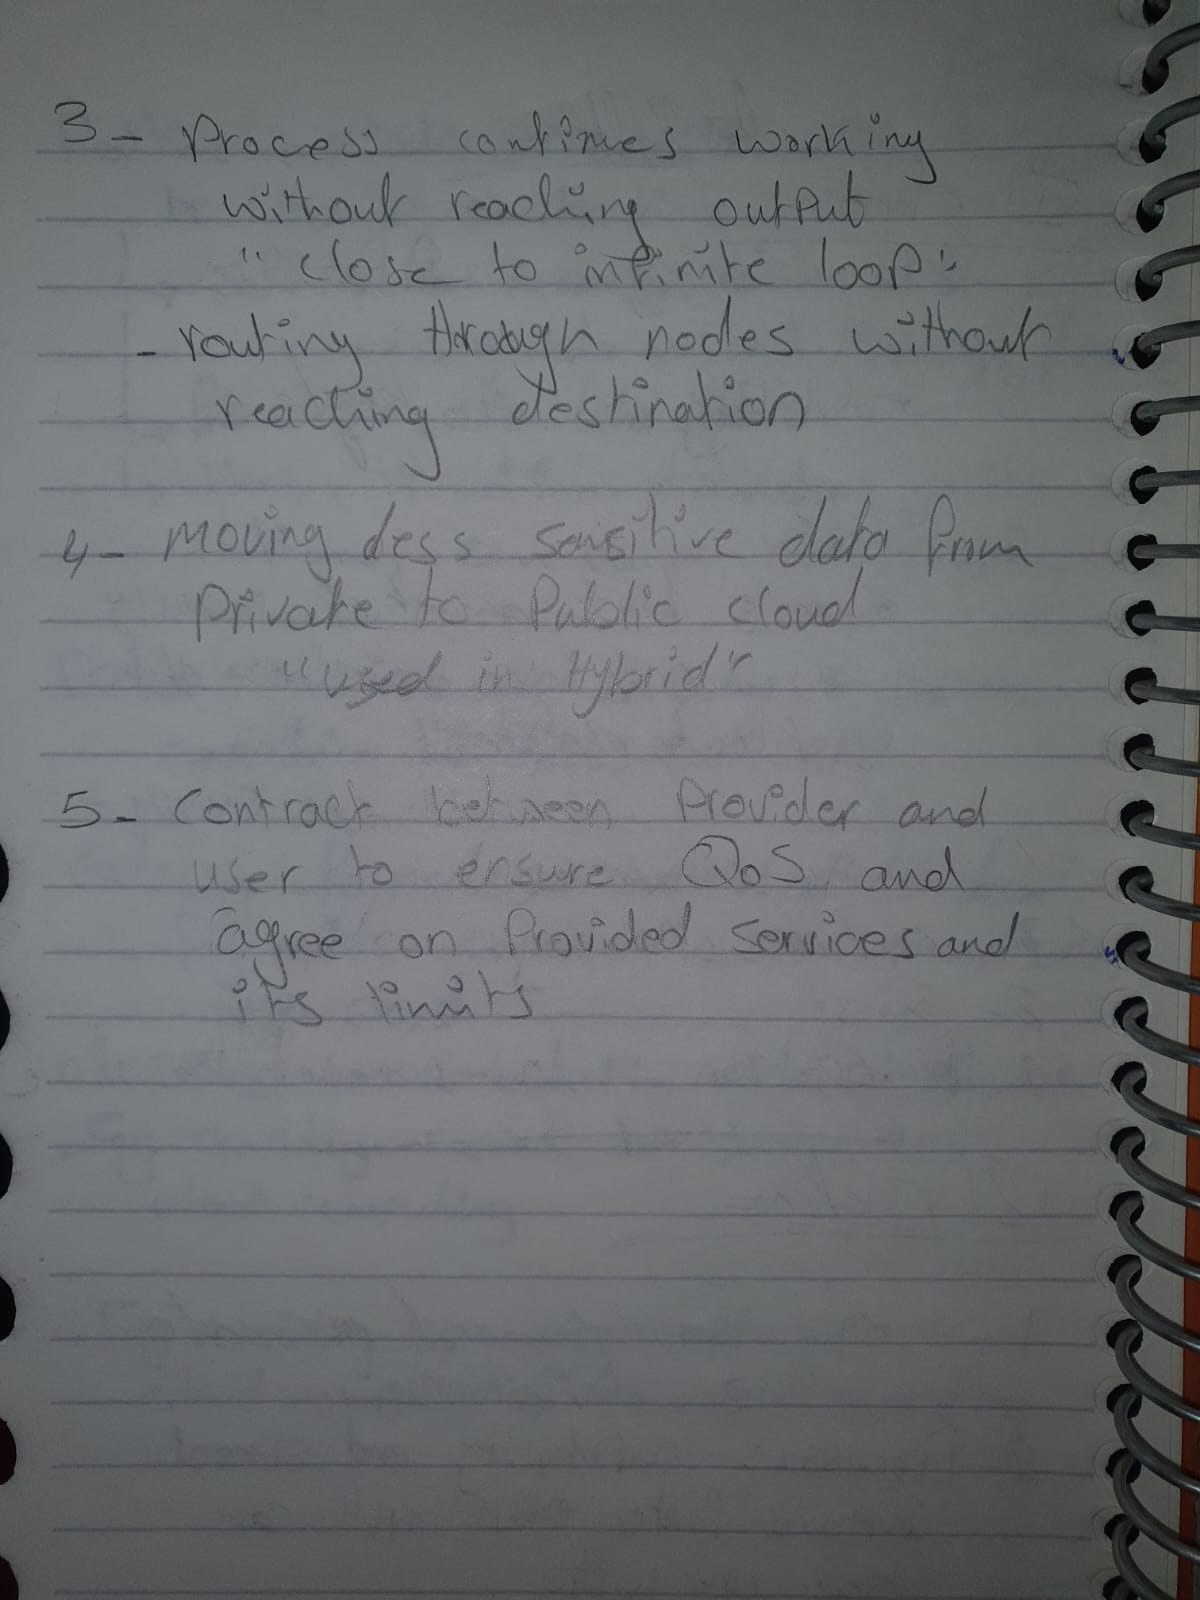 3- Process continues working
without reaching output
"close to infinite loop"
- routing through nodes without
reaching destination
4- Moving less sensitive data from
private to Public cloud
"used in Hybrid"
5- Contract between Provider and
user to ensure QoS and
agree on Provided services and
its limits